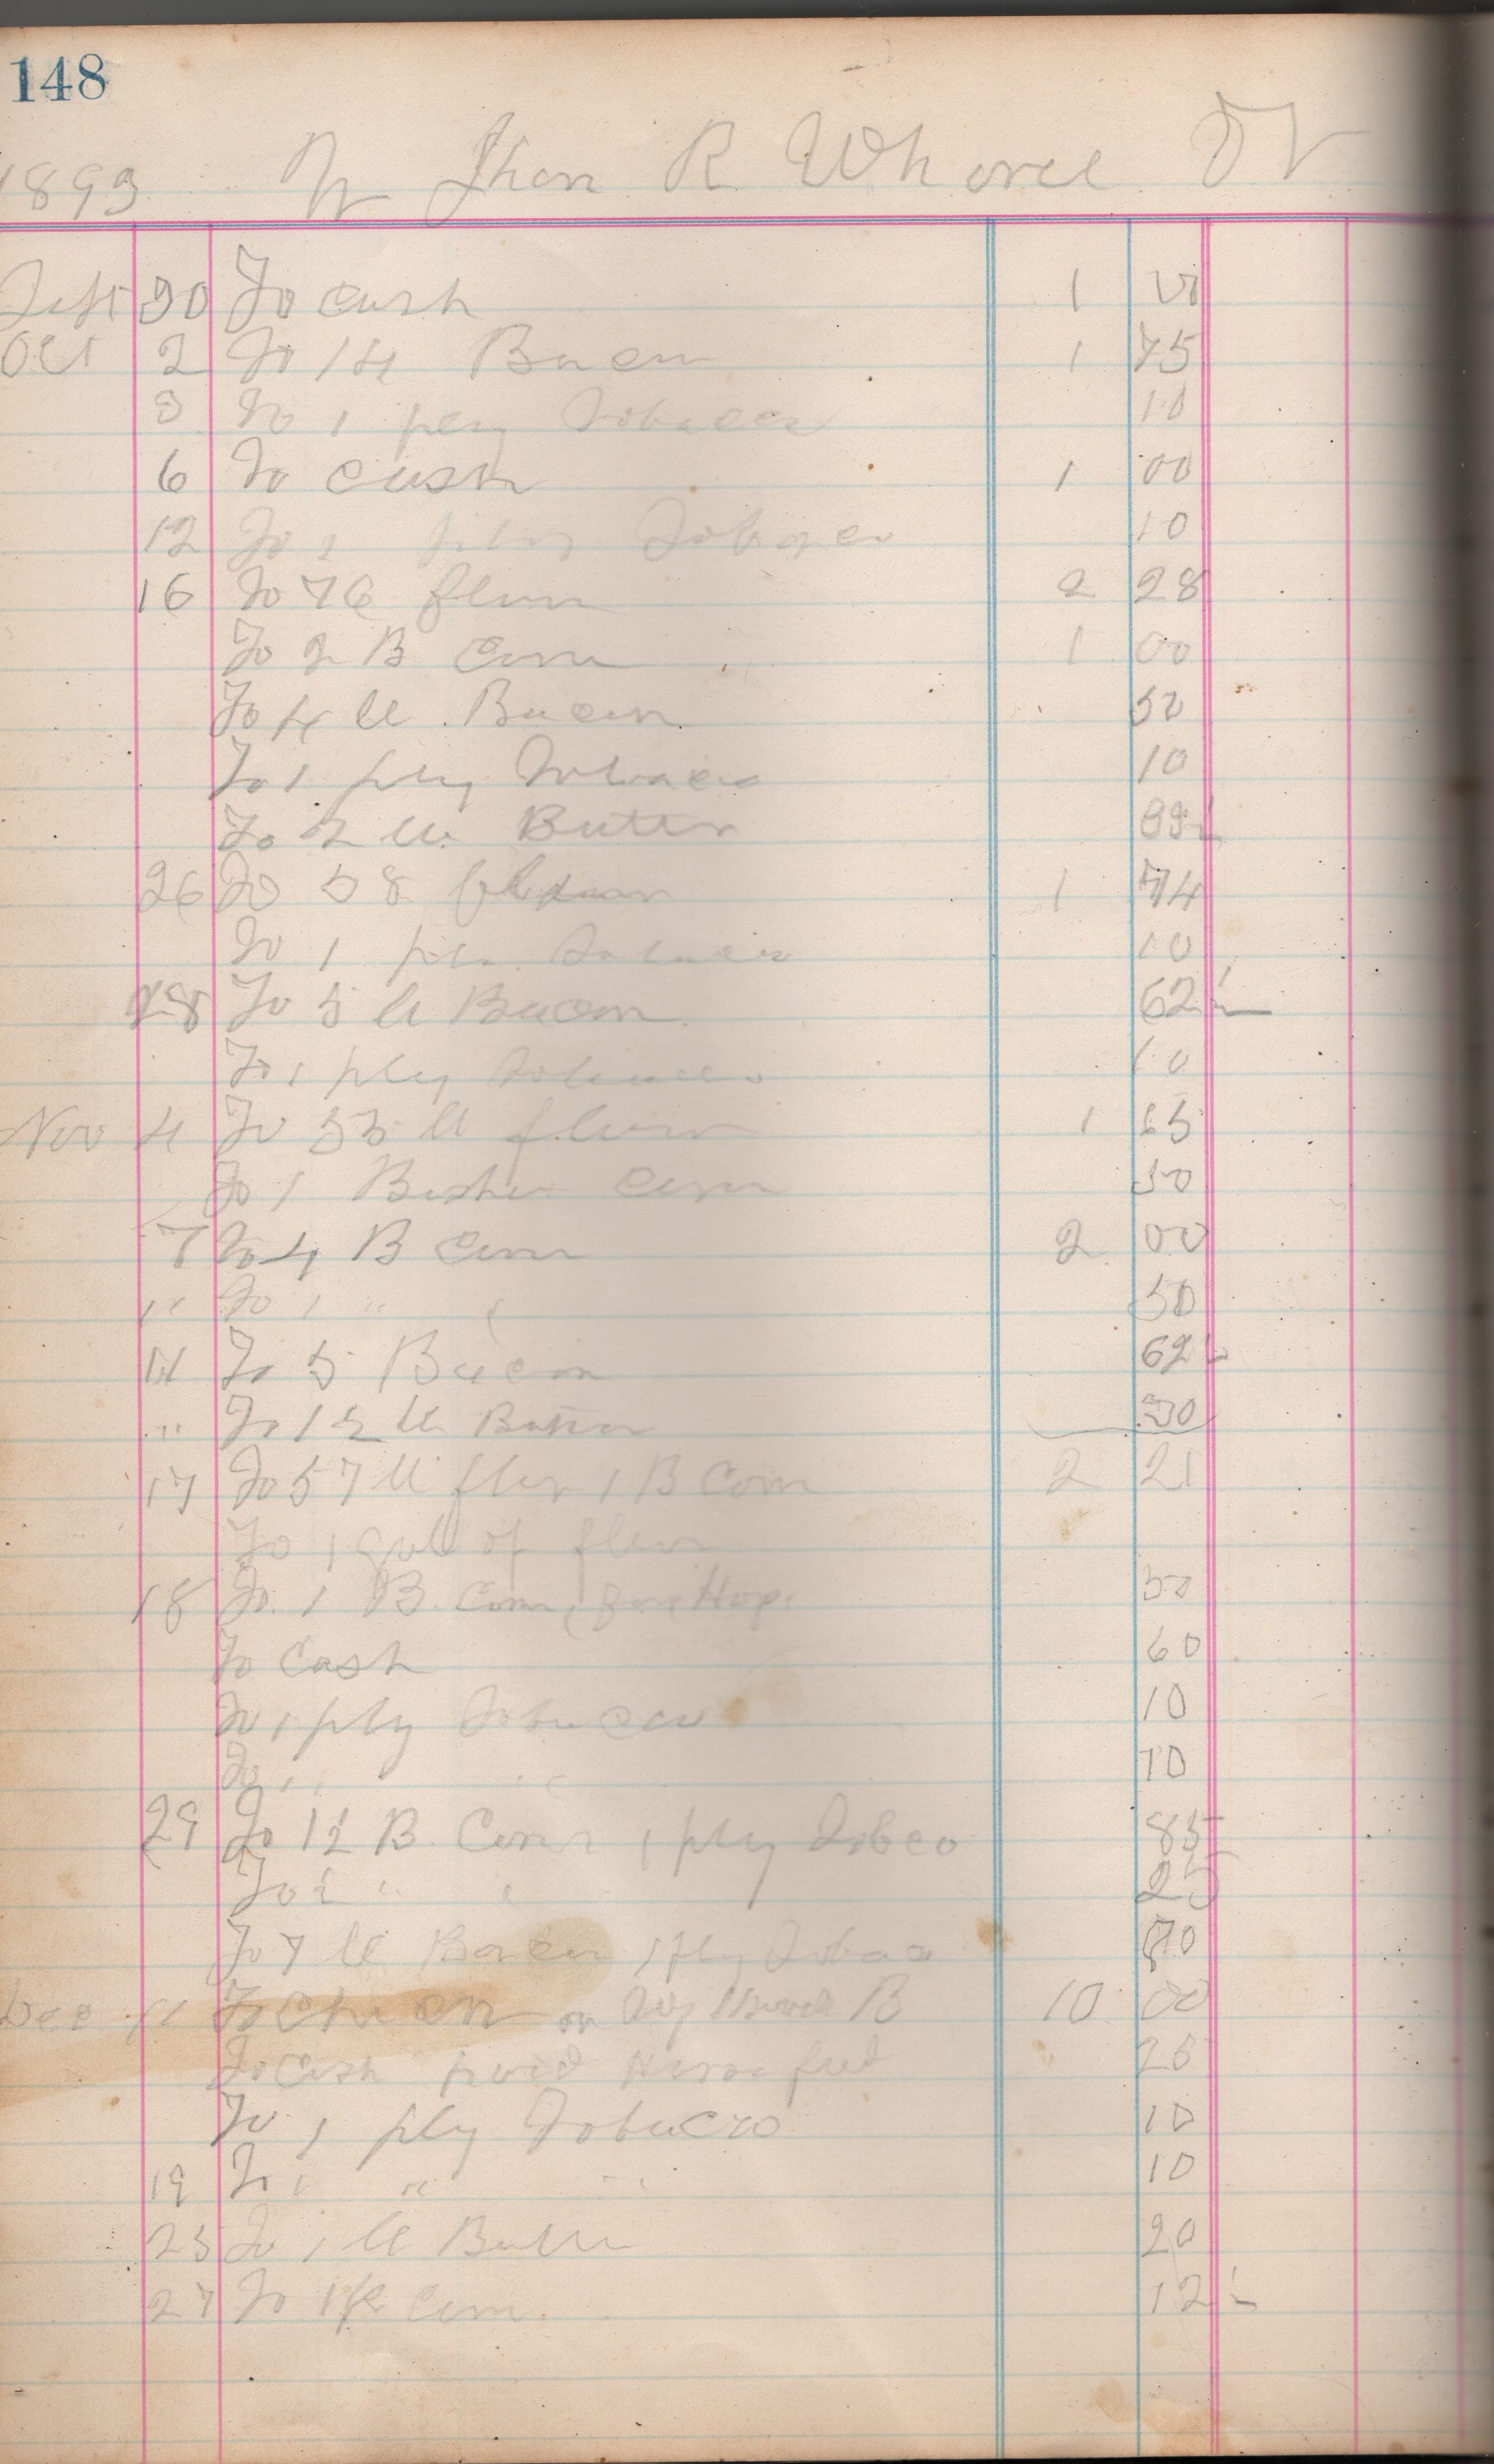 148
1893 Jhon R Whorel Dr
Sept 30 To Cash 1
Oct 2 To 14 Bacon 1 75
3 To 1 plug Tobacco 10
6 To Cash 1 00
12 To 1 plug Tobaco 10
16 To 76 flour 2 28
To 2 B Corn 1 00
To 4 ll Bacon 50
To 1 plug Tobacco 10
To 2 ll Butter
26 To 58 1 74
To 1 plug Tobacco 10
28 To 5 ll Bacon 62 ½
To 1 plug Tobacco 10
Nov 4 To 55 ll flour 1 65
To 1 Bushel Corn 50
7 To 4 B Corn 2 00
" To 1 " " 50
14 To 5 Bacon 62 ½
" To 1 ½ ll Butter 30
17 To 57 ll flour 1 B Corn 2 21
To 1 of flour
18 To 1 B Corn for Hogs 50
To Cash 60
To 1 plug Tobacco 10
To 1 " " 10
29 To 1½ B Corn 1 plug Tobco 85
To ½ " " 25
To 7 ll Bacon 1 plug Tobaco
Dec To on B 10 00
To Cash paid Horse feed 25
To 1 plug Tobacco 10
19 To 1 " " 10
23 To 1 ll Butter 20
27 To 1 Corn 12 ½